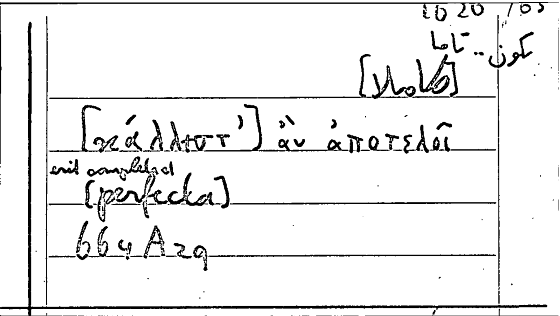 1020 / 03
تكون .. تاما
[κάλλιστ'] ἂν ἀποτελοῖ
erit completed
[perfecta]
664 A 29